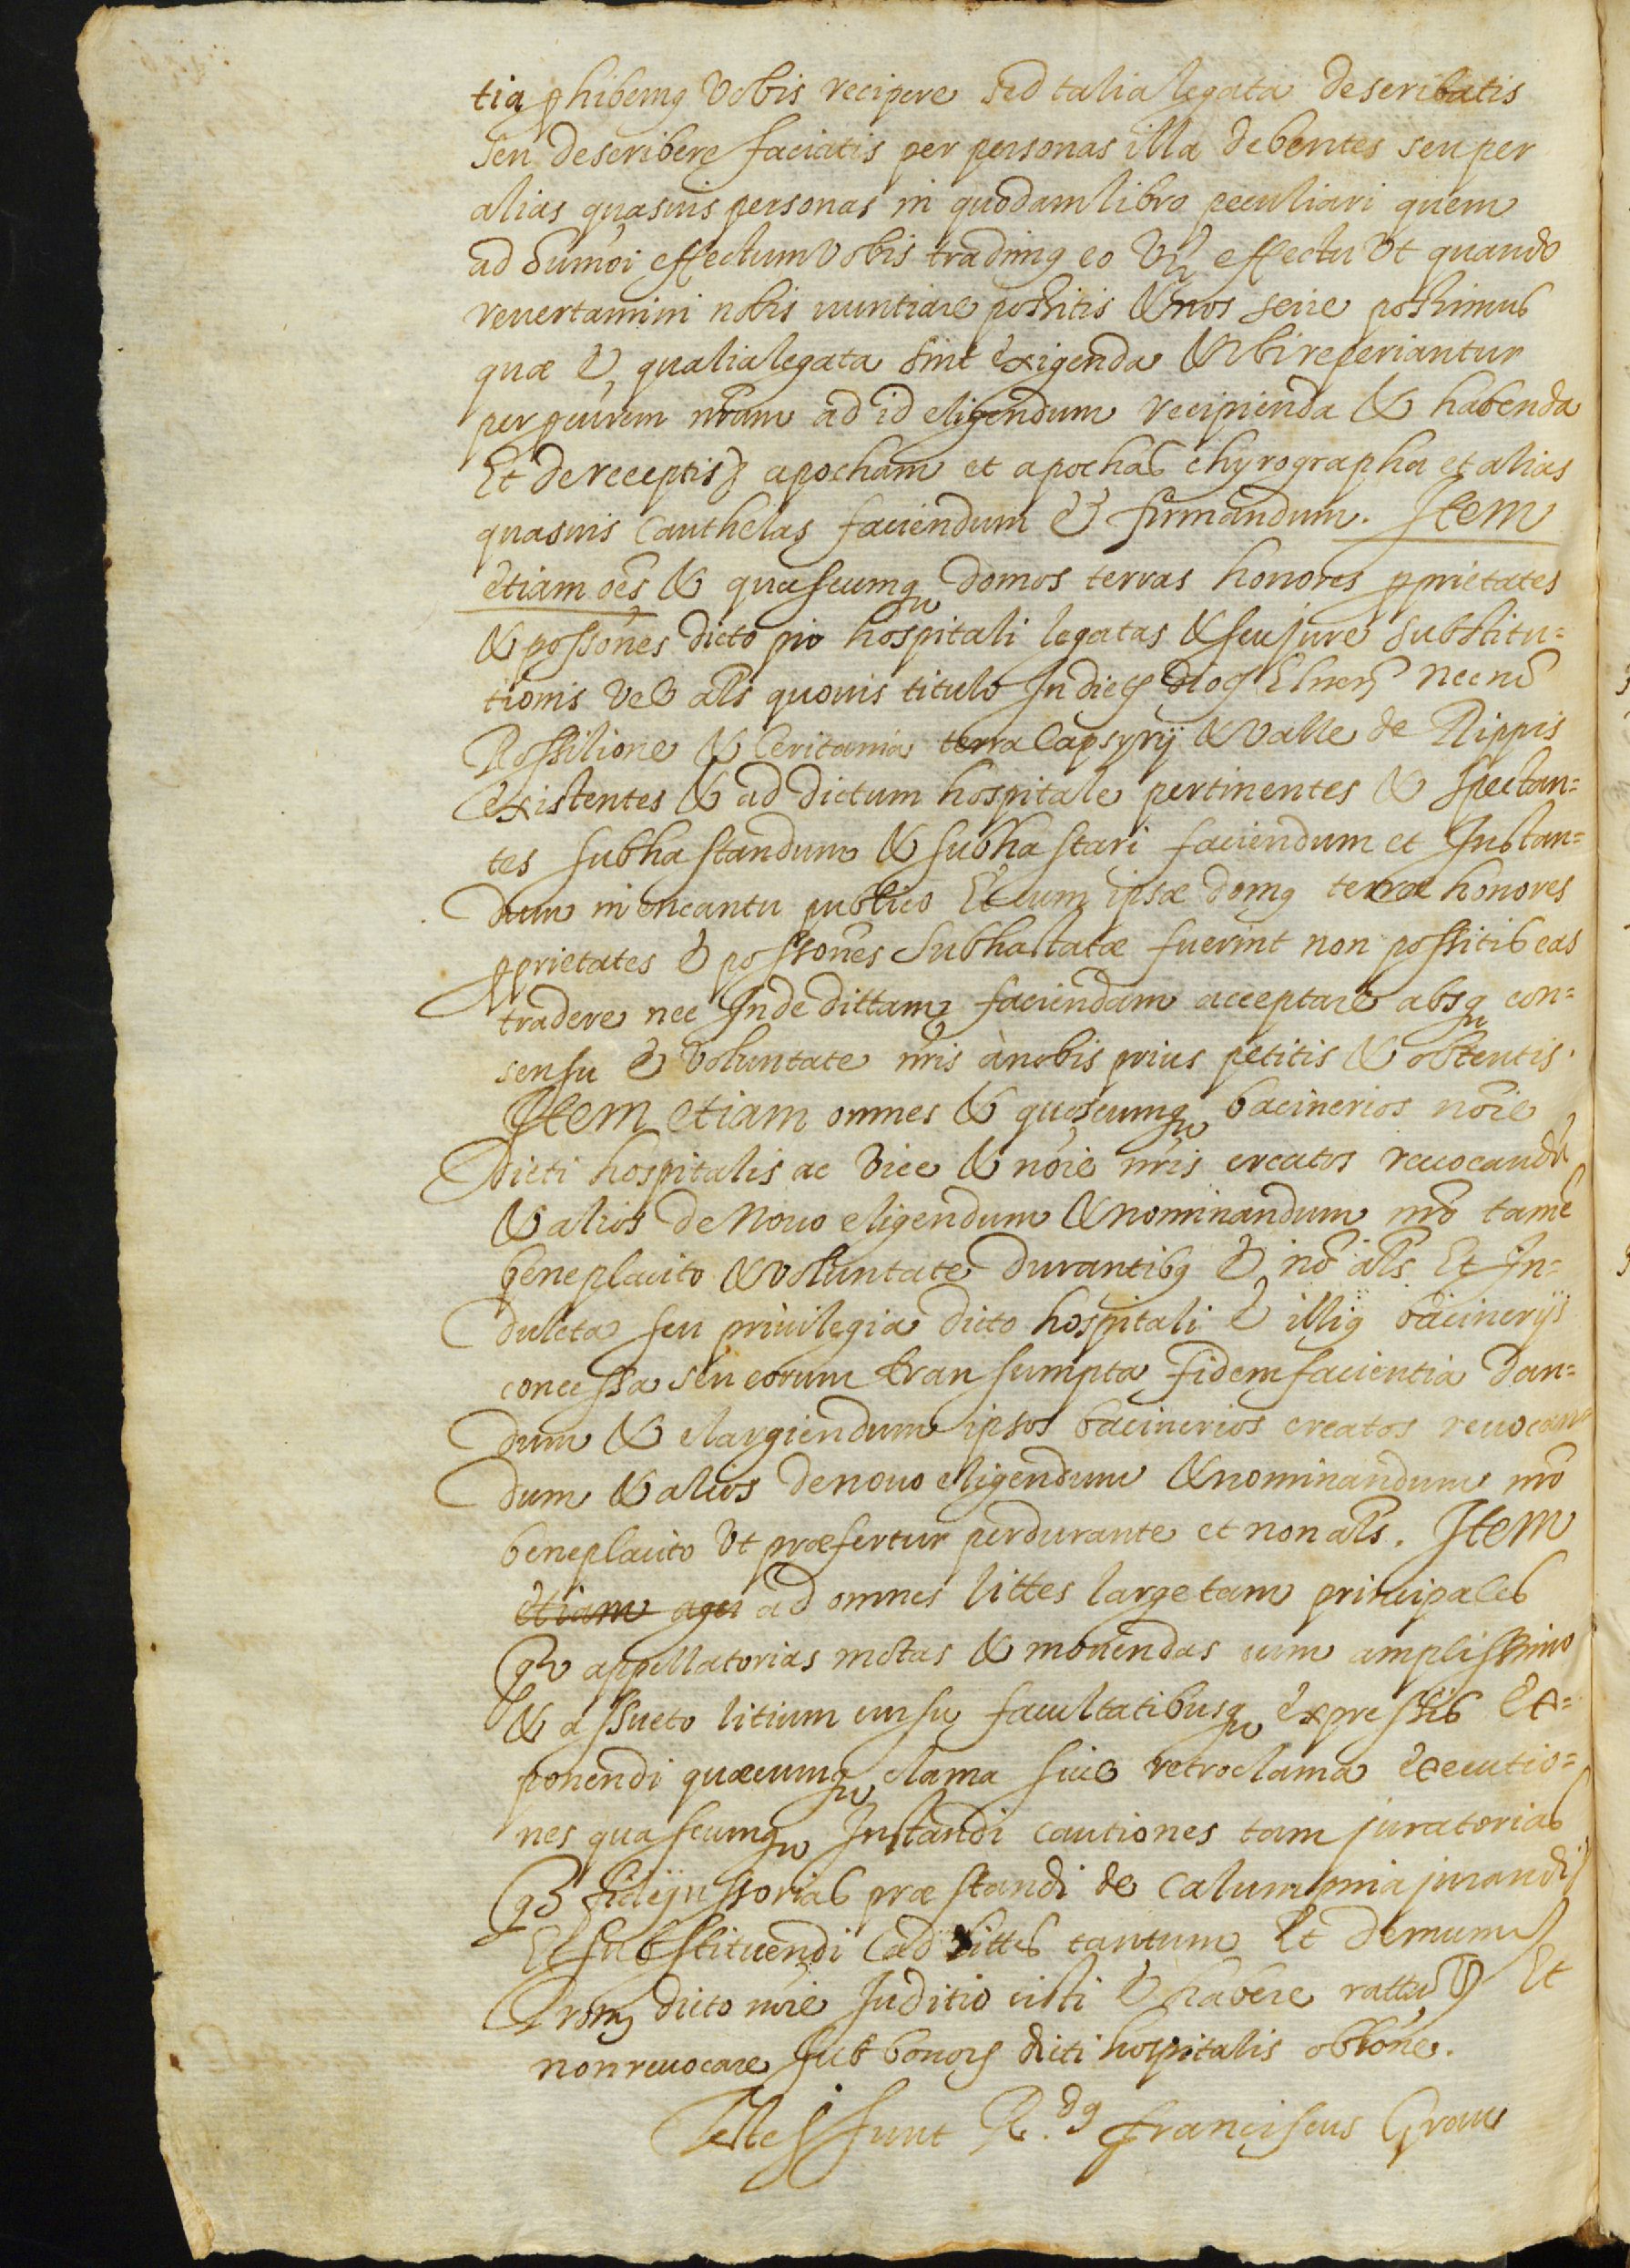 tia ꝓhibemꝰ Vobis recipere sed talia legata describatis
Seu describere faciatis per personas illa debentes seu per
alias quasuis personas in quodam libro peculiari quem
ad humoi effectum Vobis tradimꝰ eo Vꝫ effectu Vt quando
reuertamini nobis nuntiare possitis & nos scire possimus
quæ & qualia legata sint exigenda & Vbi reperiantur
per ꝓcurem nram ad id eligendum recipienda & habenda
Et de receptis apocham et apochas chyrographa et alias
quasuis Cauthelas faciendum & firmandum. Item
etiam oēs & quascumqꝫ domos terras honores ꝓprietates
& possōnes dicto pio hospitali legatas & seu jure Substitu=
tionis Vel als quouis titulo In dictꝭ diocꝭ Elnen̄ Nec nō
Rossilione & Ceritania terra Capsyrij & Valle de Rippis
existentes & ad dictum hospitale pertinentes & Spectan=
tes subhastandum & subhastari faciendum et Instan=
dum in encantu publico Et cum ipsæ domꝰ terræ honores
ꝓprietates & possōnes Subhastatæ fuerint non possitis eas
tradere nec Inde dittam faciendam acceptare absqꝫ con=
sensu & Voluntate nris a nobis prius petitis & obtentis.
Item etiam omnes & quoscumqꝫ bacinerios nōie
Dicti hospitalis ac Vice & nōie nris creatos reuocandū
& alios de Nouo eligendum & nominandum nrō tamē
beneplacito & Voluntate durantibꝰ & nō als Et In=
dulta seu priuilegia dicto hospitali & illiꝰ bacinerijs
concessa seu eorum transumpta fidem facientia dan=
dum & elargiendum ipsos bacinerios creatos reuocan
dum & alios de nouo eligendum & nominandum nrō
beneplacito Vt præfertur perdurante et non als. Item
etiam ager ad omnes littes large tam principales
qꝫ appellatorias motas & mouendas cum amplissimo
& assueto litium cursu facultatibusqꝫ expressis Ex=
ponendi quæcumqꝫ clama siue retroclama executio=
nes quascumqꝫ Instandi cautiones tam juratorias
qꝫ fideijussorias præstandi de calumpnia jurandi
Et substituendi ad littes tantum Et demum
Prom̄ dicto nōie Juditio sisti & habere rattū Et
non reuocare sub bonorꝭ dicti hospitalis oblōne.
Testes sunt R.dꝰ franciscus Grau